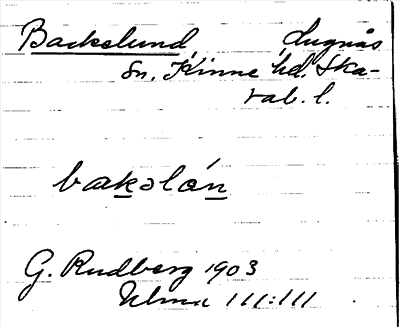 Backelund, Lugnås
Sn. Kinne hd. Ska-
rab. l.
bakəlán
G. Rudberg 1903
Ulma 111:111